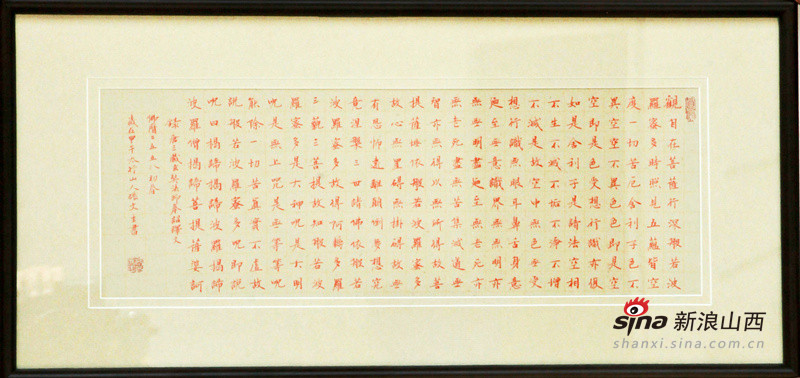 觀自在菩薩行深般若波
羅蜜多時照見五蘊皆空
度一切苦厄舍利子色不
異空空不異色色即是空
空即是色受想行識亦復
如是舍利子是諸法空相
不生不滅不垢不淨不增
不減是故空中無色無受
想行識無眼耳鼻舌身意
迺至無意識界無無明亦
無無明盡迺至無老死亦
無老死盡無苦集滅道無
智亦無得以無所得故菩
提薩埵依般若波羅蜜多
故心無罣礙無掛礙故無
有恐怖遠離顛倒夢想究
竟涅槃三世諸佛依般若
波羅蜜多故得阿耨多羅
三藐三菩提故知般若波
羅蜜多是大神咒是大明
咒是無上咒是無等等咒
能除一切苦真實不虛故
說般若波羅蜜多咒即說
咒曰揭諦揭諦波羅揭諦
波羅僧揭諦菩提薩婆訶
錄唐三藏玄奘法師奉詔譯文
佛曆二五五八初春
歲在甲午
sina 新浪山西
shanxi.sina.com.cn